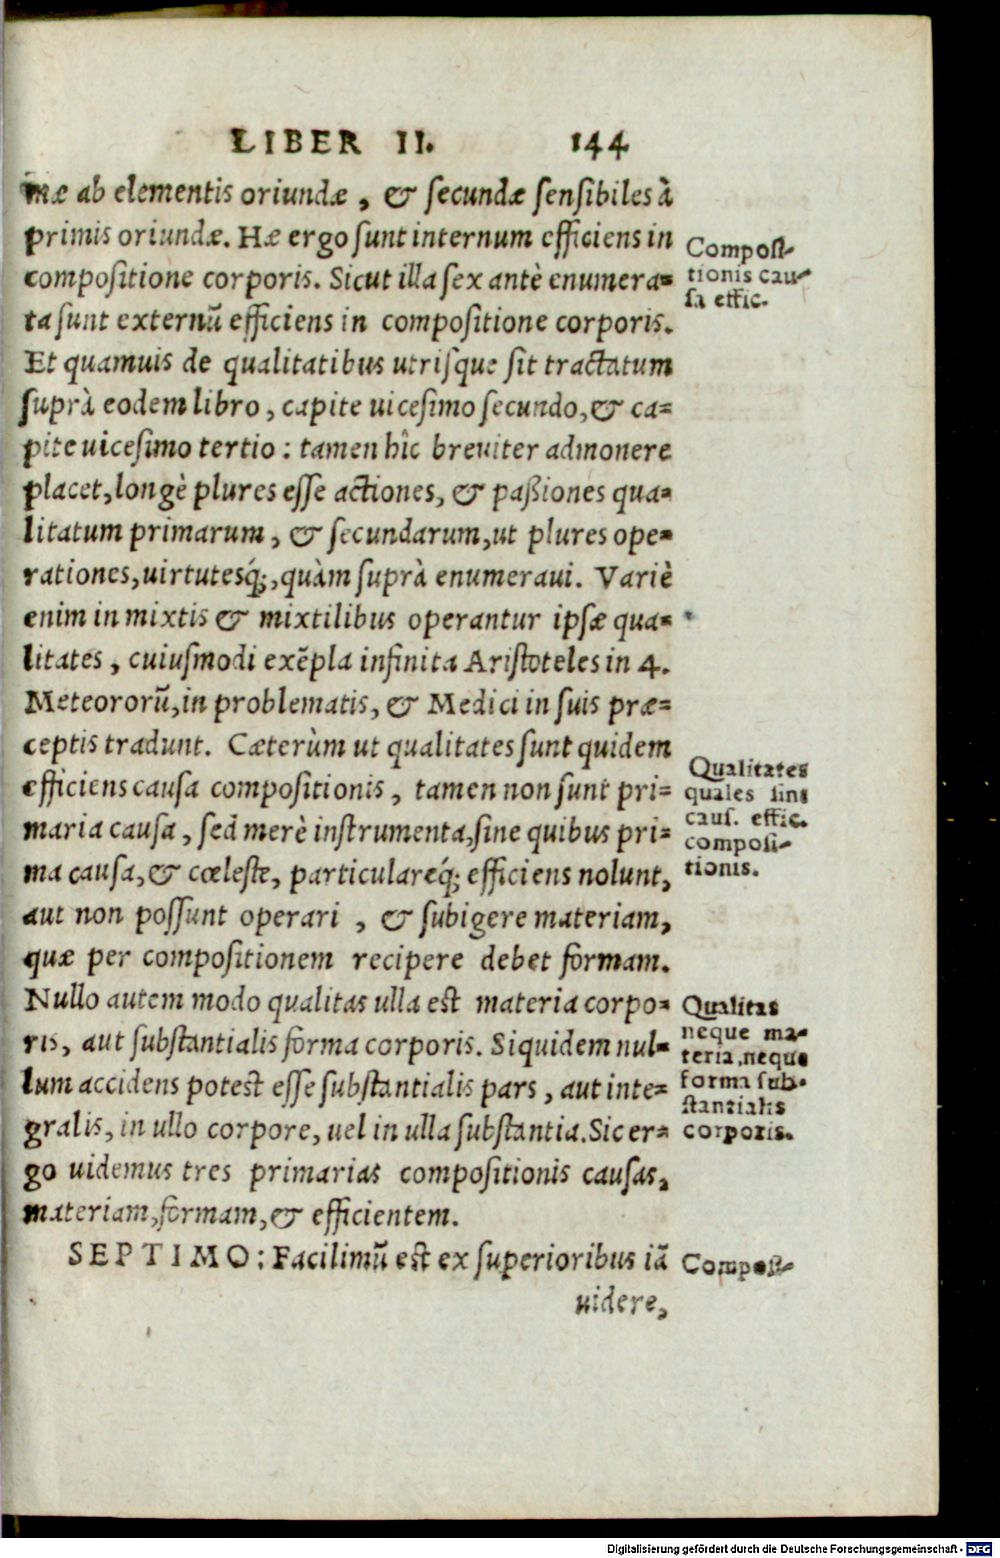 LIBER II. 144
mæ ab elementis oriundæ, & secundæ sensibiles à
primis oriundæ. Hæ ergo sunt internum efficiens in
compositione corporis. Sicut illa sex antè enumera-
ta sunt externũ efficiens in compositione corporis.
Et quamuis de qualitatibus utrisque sit tractatum
suprà eodem libro, capite uicesimo secundo, & ca-
pite uicesimo tertio: tamen hîc breuiter admonere
placet, longè plures esse actiones, & paßiones qua-
litatum primarum, & secundarum, ut plures ope-
rationes, uirtutesq́;, quàm suprà enumeraui. Variè
enim in mixtis & mixtilibus operantur ipsæ qua-
litates, cuiusmodi exẽpla infinita Aristoteles in 4.
Meteororũ, in problematis, & Medici in suis præ-
ceptis tradunt. Cæterùm ut qualitates sunt quidem
efficiens causa compositionis, tamen non sunt pri-
maria causa, sed merè instrumenta, sine quibus pri-
ma causa, & cœleste, particulareq́; efficiens nolunt,
aut non possunt operari, & subigere materiam,
quæ per compositionem recipere debet formam.
Nullo autem modo qualitas ulla est materia corpo-
ris, aut substantialis forma corporis. Siquidem nul-
lum accidens potest esse substantialis pars, aut inte-
gralis, in ullo corpore, uel in ulla substantia. Sic er-
go uidemus tres primarias compositionis causas,
materiam, formam, & efficientem.
SEPTIMO: Facilimũ est ex superioribus iã
uidere,
Composi-
tionis cau-
sa effic.
Qualitates
quales sint
caus. effic.
composi-
tionis.
Qualitas
neque ma-
teria, neque
forma sub-
stantialis
corporis.
Composi-
Digitalisierung gefördert durch die Deutsche Forschungsgemeinschaft - DFG